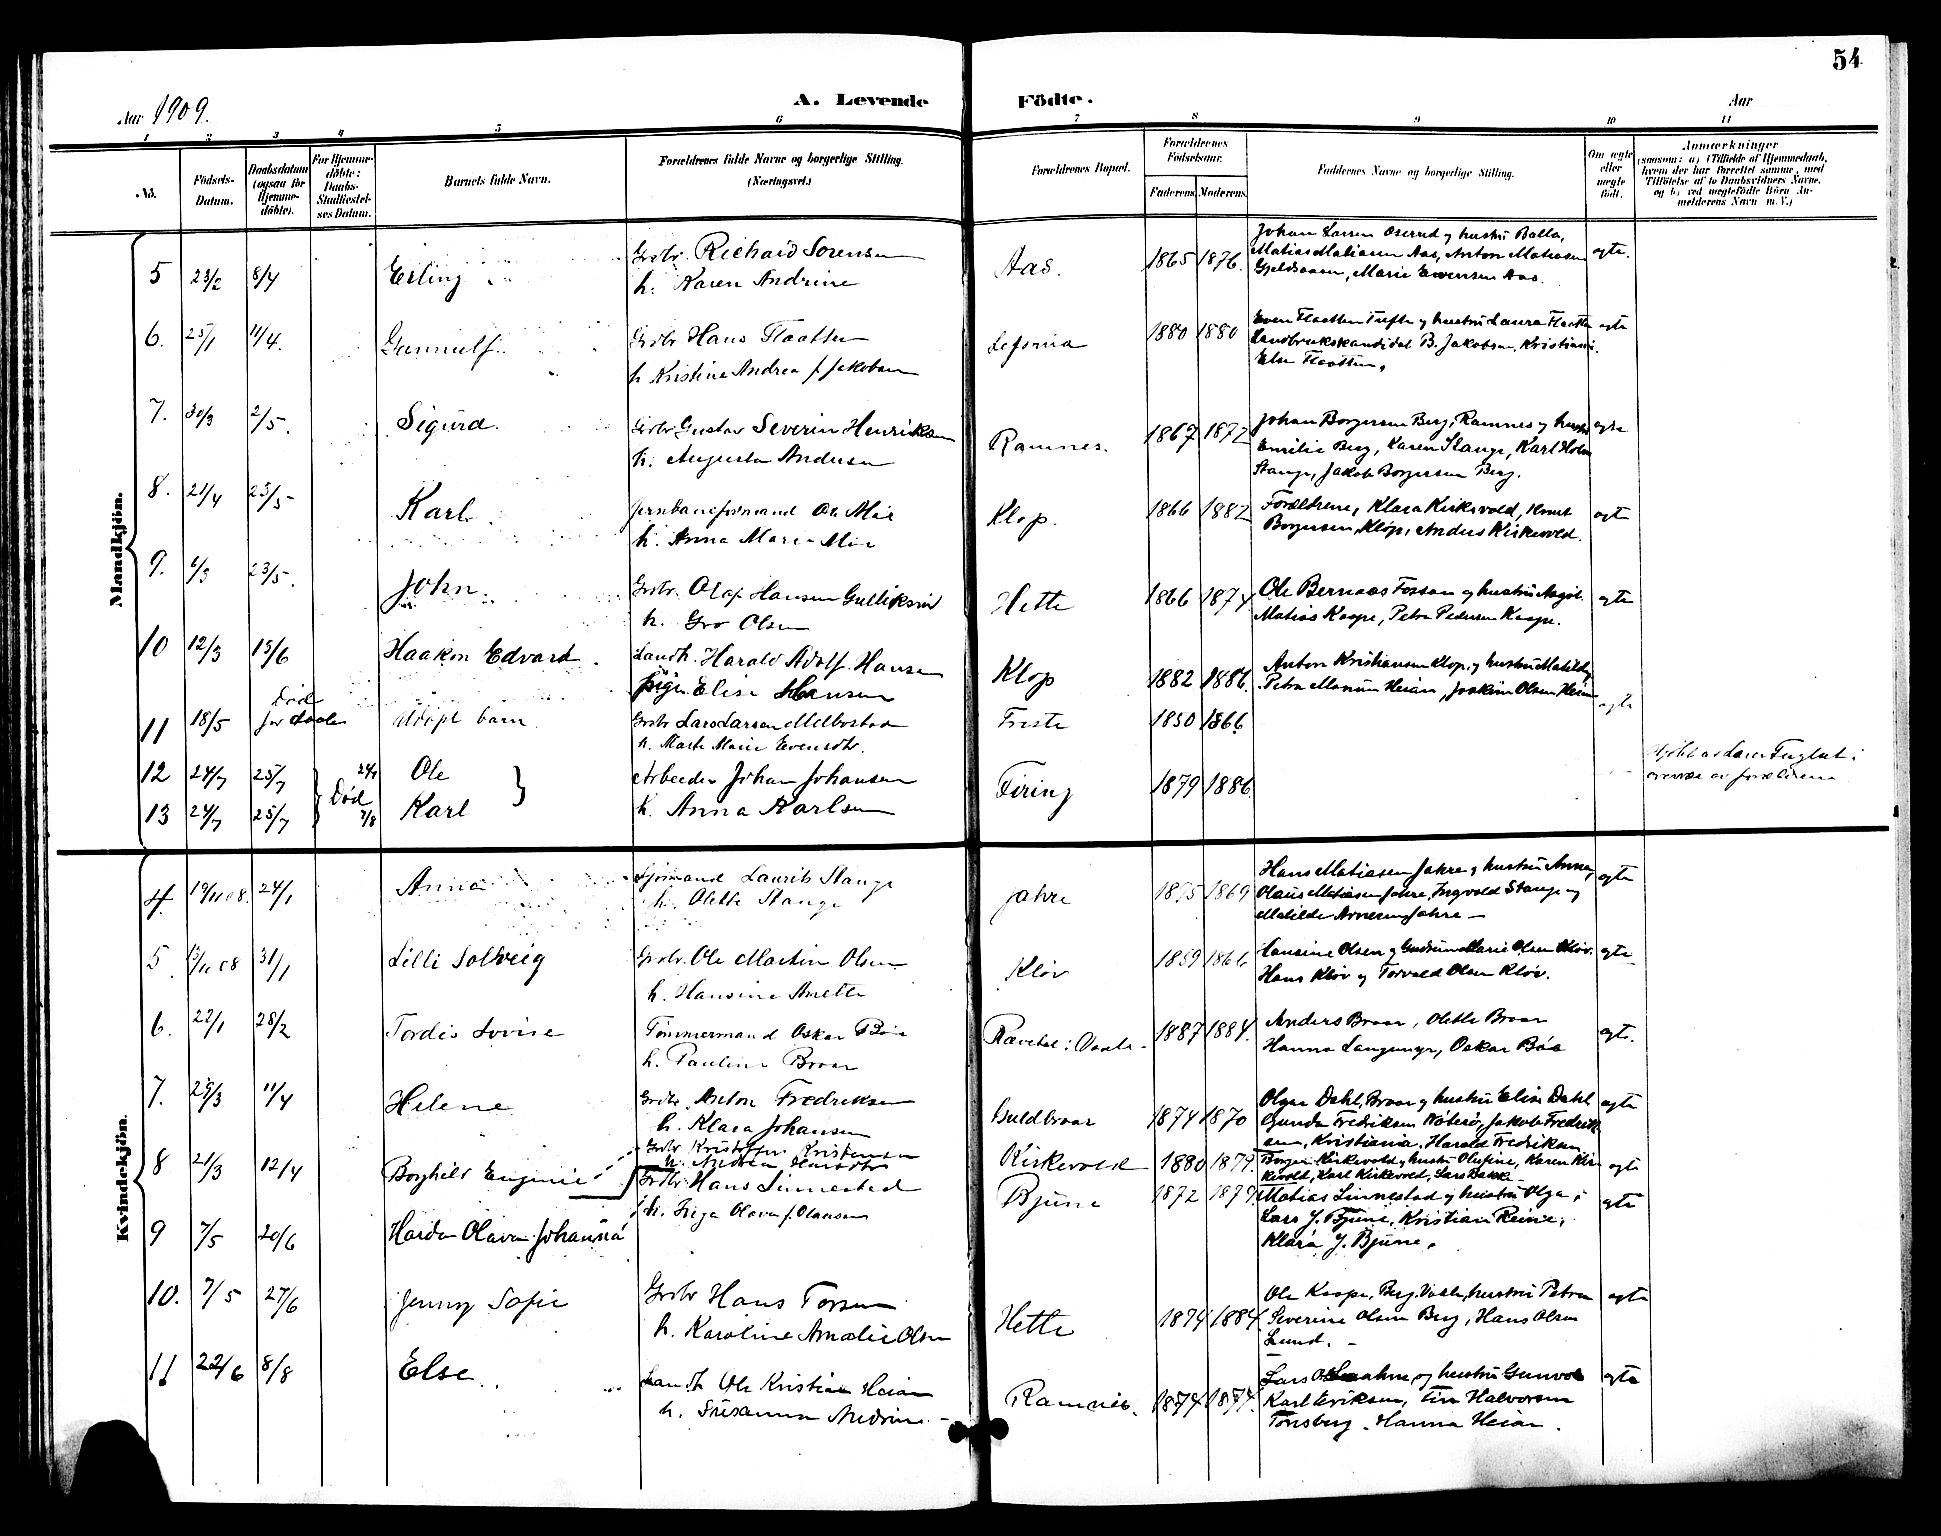 54
Aar 1909.
A. Levende Födte.
Aar
1 2 3 4 5 6 7 8 9 10 11
No.
Födsels-Datum.
Daabsdatum (ogsaa for Hjemme-döbte).
For Hjemme-döbte: Daabs-Stadfæstel-ses Datum.
Barnets fulde Navn.
Forældrenes fulde Navne og borgerlige Stilling. (Næringsvei.)
Forældrenes Bopæl.
Forældrenes Födselsaar.
Faderens. Moderens.
Faddernes Navne og borgerlige Stilling.
Om ægte eller uægte födt.
Anmærkninger
(saasom: a) i Tilfælde af Hjemmedaab, hvem der har forrettet samme, med Tilföielse af to Daabsvidners Navne, og b) ved uegtefödte Börn An-melderens Navn m. V.)
Mandkjön.
5 23/2 8/4 Erling Grbr. Richard Sorensen Aas. 1865 1876. Johan Larsen Oserud og hustru Balla, ægte.
h. Karen Andrine Matias Matiasen Aas, Anton Matiasen
Gjeldsaasen, Marie Evensen Aas.
6. 25/1 11/4. Gunnulf Grbr Hans Flaatten Lefsrud 1880 1880 Even Flaatten Tufte og hustru Laura Flaatten ægte
h Kristine Andrea f. Jakobsen Landbrukskandidat B. Jakobsen, Kristiania.
Else Flaatten.
7. 30/3 2/5. Sigurd. Grbr Gustav Severin Henriksen Ramnes. 1867 1872 Johan Borgersen Berg, Ramnes og hustru ægte
h. Augusta Andersen Emilie Berg, Karen Stange, Karl Holm
Stange, Jakob Borgersen Berg.
8. 21/4 23/5 Karl Jernbaneformand Ole Moe Klop. 1866 1882 Forældrene, Klara Kirkevold, Knut ægte
h. Anna Marie Moe Borgersen Klop, Anders Kirkevold.
9. 6/3 23/5. John. Grbr. Olaf Hansen Gulliksrud Hette 1866 1874 Ole Bernaas Fossan og hustru ægte
h. Gro Olsen Matias Kaape, Petra Pedersen Kaape.
10 12/3 13/6 Haakon Edvard. Landh. Harald Adolf Hansen Klop 1882 1886. Anton Kristiansen Klop, og hustru Matilde, ægte
pige Elise Hansen Petra Marium Heian, Joakim Olsen Heian
11 18/5 Død før daaben Udøpt barn Grbr Lars Larsen Melbostad Freste 1850 1866.
h. Marte Marie Evensdtr.
12 24/7 25/7 24/7 Ole Arbeider Johan Johansen Firing 1879 1886
13 24/7 25/7 Død 7/8 Karl h. Anna Karlsen
Kvindekjön.
4. 19/11 08. 24/1 Anna Sjømand Laurits Stange Jahre 1875 1869 Hans Matiasen Jahre og hustru Anna, ægte
h. Olette Stange Olaus Matiasen Jahre, Ingvald Stange og
Matilde Arnesen Jahre
5. 13/11 08 31/1 Lilli Solveig Grbr. Ole Martin Olsen Kløv 1859 1866 Hansine Olsen og Gudrun Marie Olsen Kløv. ægte
h. Hansine Anette Hans Kløv og Torvald Olsen Kløv.
6. 22/1 28/2 Tordis Lovise Tømmermand Oskar Bøe Rævetal i Vaale. 1887 1884. Anders Broar, Olette Broar ægte.
h. Pauline Broar Hanna Langumyr, Oskar Bøe
7. 25/3 11/4 Helene Grbr. Anton Fredriksen Guldbroar 1874 1870 Olga Dahl, Broar og hustru Elise Dahl ægte
h. Klara Johansen Gunda Fredriksen Nøterø, Jakob Fredrik
sen, Kristiania, Harald Fredriksen
8 21/3 12/4 Borghild Eugenie Grbr Kristoffer Kristensen Kirkevold 1880 1879. Borger Kirkevold og hustru Olufine, Karen Kir ægte
h. Andrea kevold, Karl Kirkevold, Lars Bakke
9 7/5 20/6 Harda Olava Johanna Grbr. Hans Linnestad Bjune 1872 1879 Matias Linnestad og hustru Olga, ægte
h. Inga Olava f. Olausen Lars J. Bjune, Kristian Reine,
Klara J. Bjune.
10. 7/5 27/6 Jenny Sofie Grbr Hans Torsen Hette 1874 1884 Ole Kaape, Berg, Vaale, hustru Petra ægte
h. Karoline Amalie Olsen Severine Olsen Berg, Hans Olsen
Lund.
11 22/6 8/8 Else Landh Ole Kristian Heian Ramnes. 1874 1874. Lars og hustru Gunvor ægte
h. Susanna Andrine Karl Eriksen, Halvorsen
Tønsberg. Hanna Heian.